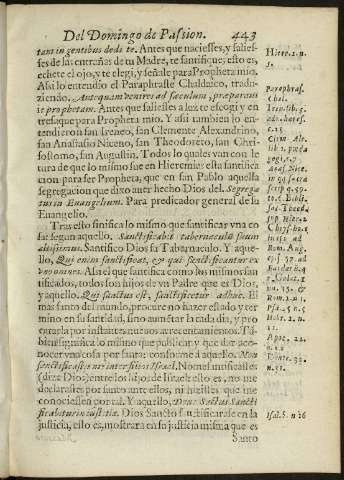 Del Domingo de Passion. 443
tam in gentibus dedi te. Antes que naciesses, y salies-
ses de las entrañas de tu Madre, te santifique, esto es,
echete el ojo, y te elegi, y señale para Propheta mio.
Assi lo entendio el Paraphraste Chaldaico, tradu-
ziendo. Antequam venires ad saeculum, praeparaui
te prophetam. Antes que saliesses a luz te escogi y en
tresaque para Propheta mio. Y assi tambien lo en-
tendieron san Ireneo, san Clemente Alexandrino,
san Anastasio Niceno, san Theodoreto, san Chri-
sostomo, san Augustin. Todos los quales van con le
tura de que lo mismo fue en Hieremias esta santifica
cion para ser Propheta, que en san Pablo aquella
segregacion que dixo auer hecho Dios del. Segrega
tus in Euangelium. Para predicador general de su
Euangelio.
Tras esto sinifica lo mismo que santificar vna co
sa segun aquello. Sanctificabit tabernaculũ suum
altissimus. Santifico Dios su Tabernaculo. Y aque-
llo, Qui enim sanctificat, & qui sanctificantur ex
vno omnes. Assi el que santifica como los mismos san
tificados, todos son hijos de vn Padre que es Dios,
y aquello. Qui sanctus est, sanctificetur adhuc. El
mas santo del mundo, procure no hazer estado y ter
mino en su santidad, sino aumentarla cada dia, y pro
curarla por instantes nueuos acrecentamientos. Tã-
bien significa lo mismo que publicar y que dar a co-
nocer vna cosa por santa: conforme à aquello. Non
sanctificastis me inter filios Israel. No me santificastes
(dize Dios) entre los hijos de Israel: esto es, no me
declarastes por santo ante ellos, ni hizistes que me
conociessen por tal. Y aquello, Deus Sanctus Sancti
ficabitur in iustitia. Dios Sancto sanctificarase en la
justicia, esto es, mostrara en su justicia misma que es
Santo
Hiere. 1. n.
5.
Paraphras.
Chal.
Clem. Ale.
lib. 1. pæda
gog. c. 7.
Rom. 1. n. 1.
Apoc. 22.
n. 11.
Isai. 5. n. 16